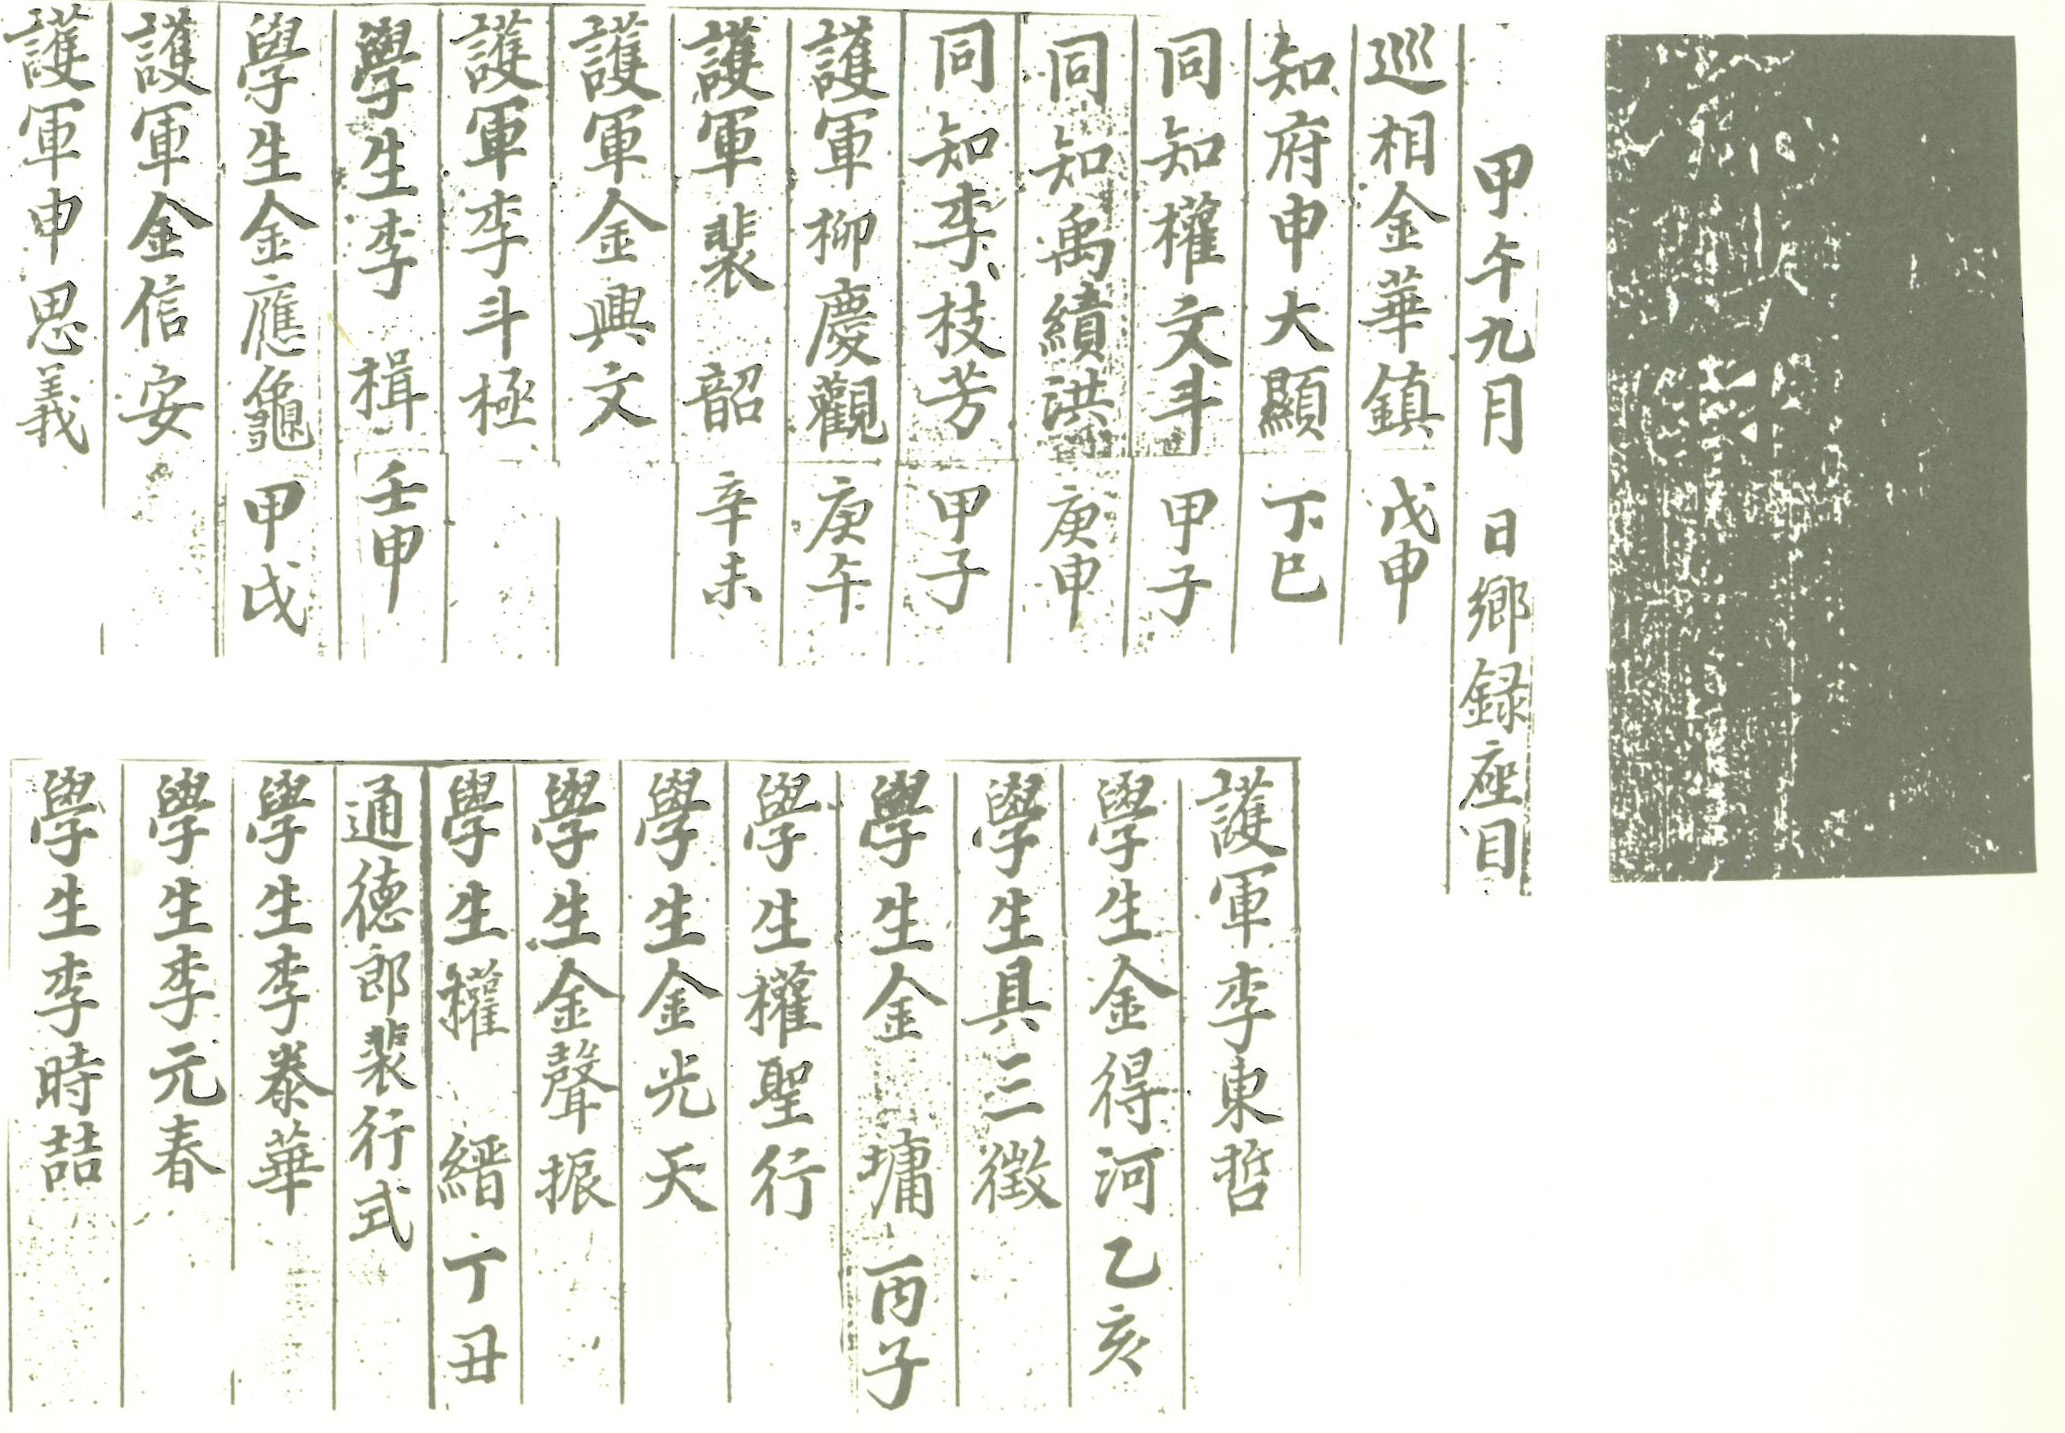 甲午九月 日鄉録座目
巡相金華鎮 戊申
知府申大顯 丁巳
同知權文斗 甲子
同知禹績洪 庚申
同知李枝芳 甲子
護軍柳慶觀 庚午
護軍裴韶 辛未
護軍金興文
護軍李斗極
學生李楫 壬申
學生金應龜 甲戌
護軍金信安
護軍申思義
護軍李東哲
學生金得河 乙亥
學生具三徵
學生金墉 丙子
學生權聖行
學生金光天
學生金聲振
學生權縉 丁丑
通德郎裴行式
學生李泰華
學生李元春
學生李時喆